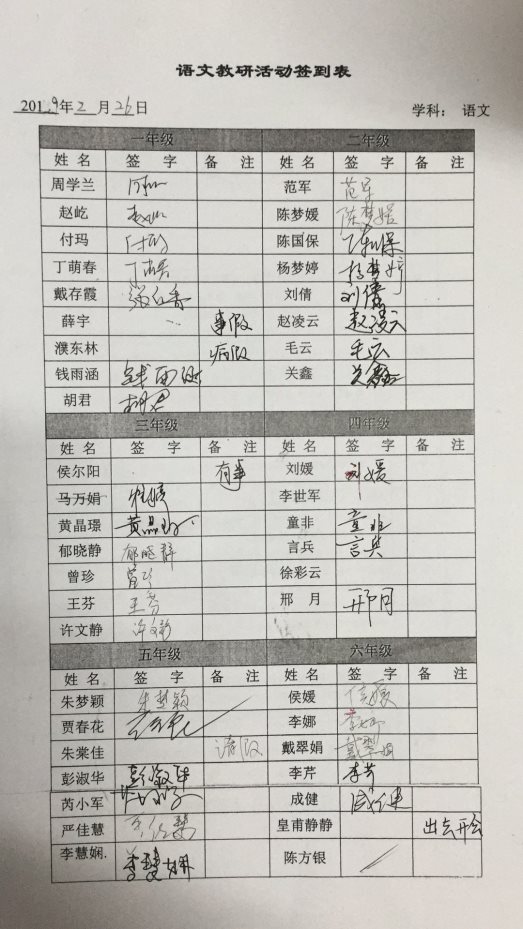 语文教研活动签到表
2019年2月26日 学科： 语文
一年级 二年级
姓名 签字 备注 姓名 签字 备注
周学兰 范军 范军
赵屹 陈梦媛 陈梦媛
付玛 付玛 陈国保 陈国保
丁萌春 丁萌春 杨梦婷 杨梦婷
戴存霞 刘倩 刘倩
薛宇 事假 赵凌云 赵凌云
濮东林 病假 毛云 毛云
钱雨涵 钱雨涵 关鑫 关鑫
胡君 胡君
三年级 四年级
姓名 签字 备注 姓名 签字 备注
侯尔阳 有事 刘媛 刘媛
马万娟 李世军
黄晶璟 黄晶璟 童非 童非
郁晓静 郁晓静 言兵 言兵
曾珍 曾珍 徐彩云
王芬 王芬 邢月 邢月
许文静 许文静
五年级 六年级
姓名 签字 备注 姓名 签字 备注
朱梦颖 朱梦颖 侯媛 侯媛
贾春花 李娜 李娜
朱棠佳 请假 戴翠娟 戴翠娟
彭淑华 彭淑华 李芹 李芹
芮小军 成健 成健
严佳慧 严佳慧 皇甫静静 出去开会
李慧娴. 李慧娴 陈方银